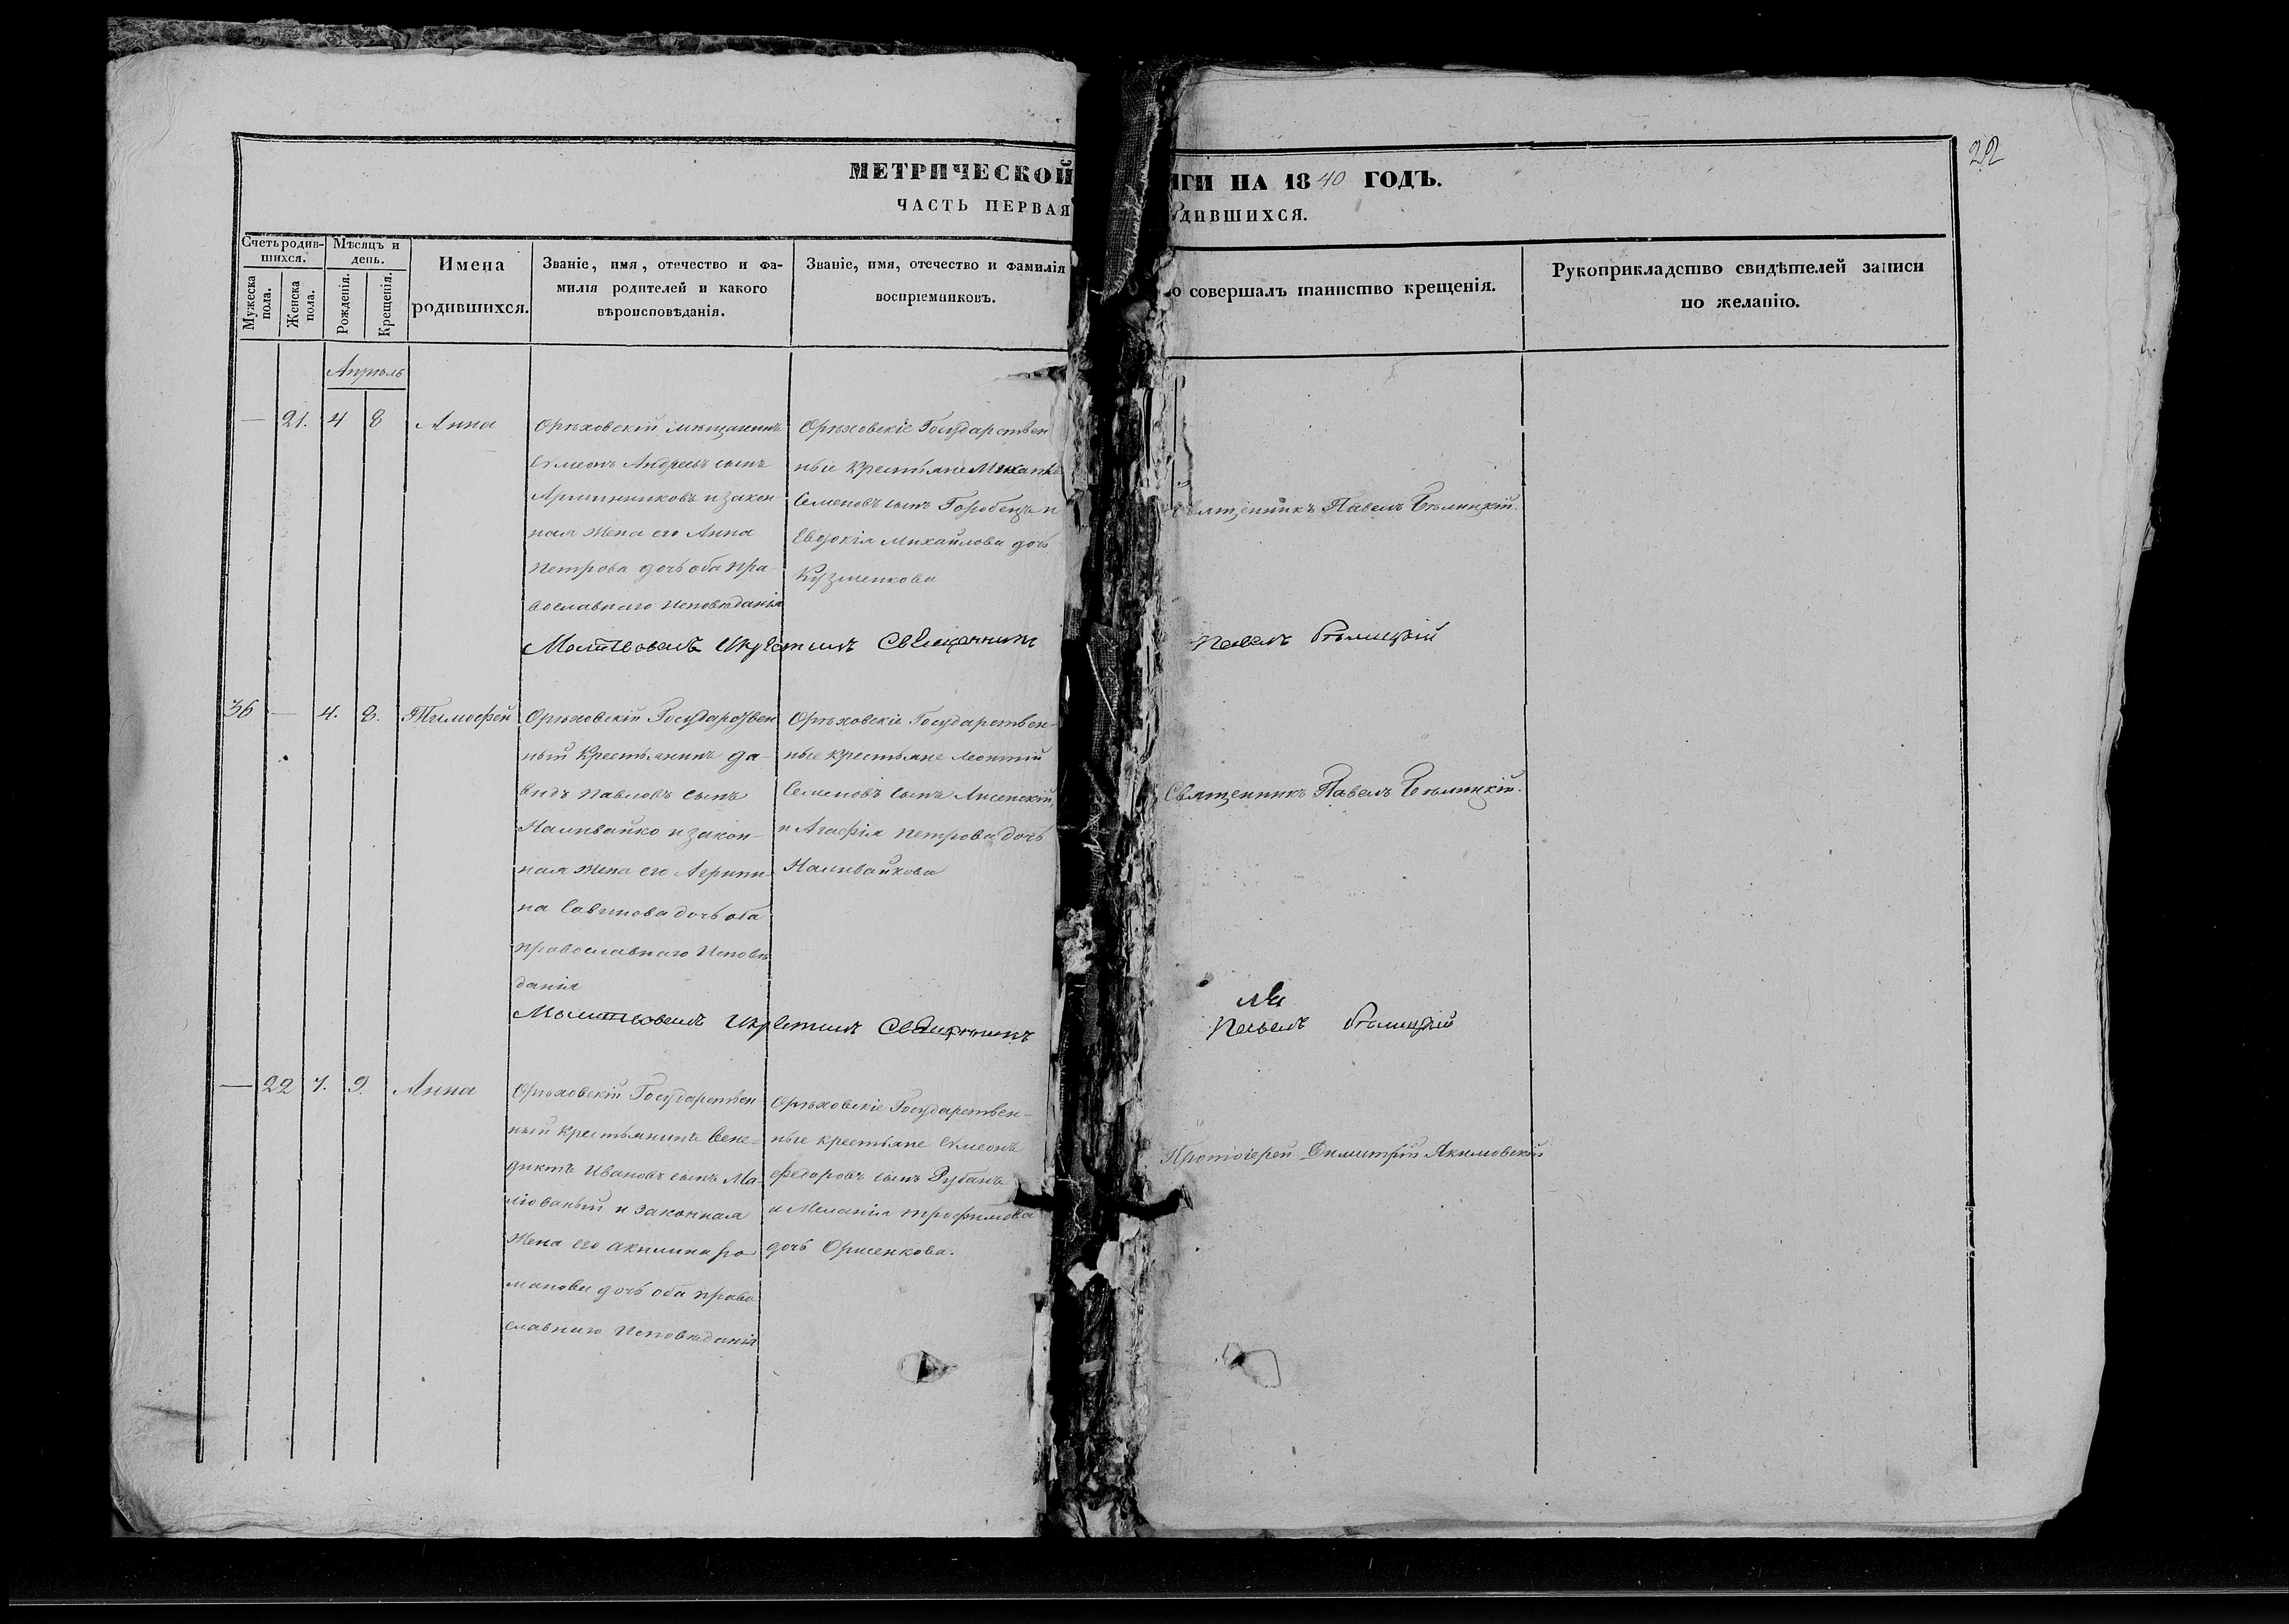 22
МЕТРИЧЕСКОЙ ГИ НА 1840 ГОДЪ.
ЧАСТЬ ПЕРВАЯ ДИВШИХСЯ.
Счетъ родив-
шихся.
Мужеска пола.
Женска пола.
Мѣсяцъ и
день.
Рожденія.
Крещенія.
Имена
родившихся.
Званіе, имя, отечество и фа-
милія родителей и какого
вѣроисповѣданія.
Званіе, имя, отечество и фамилія
воспріемниковъ.
о совершалъ таинство крещенія.
Рукоприкладство свидѣтелей записи
по желанію.
Апрѣль
— 21. 4 8 Анна
Орѣховскій мѣщанинъ
Сѵмеонъ Андреевъ сынъ
Аршинниковъ и закон-
ная жена его Анна
Петрова дочь оба пра-
вославнаго исповѣданія
Орѣховскіе Государствен
ные крестьяне
Семеновъ сынъ Горобецъ и
Евдокія Михайлова дочь
Кузменкова
Священникъ Павелъ Бѣлицкій.
Молитвовалъ и крестилъ Священникъ Павелъ Бѣлицкій
36 — 4. 8. Тимофей
Орѣховскій Государствен
ный крестьянинъ Да-
видъ Павловъ сынъ
Наливайко и закон-
ная жена его Агрипи
на Саввинова дочь оба
православнаго исповѣ
данія
Орѣховскіе Государствен-
ные крестьяне Леонтій
Семеновъ сынъ Лисенскій,
и Агафія Петрова дочь
Наливайкова
Священникъ Павелъ Бѣлицкій.
Молитвовалъ и крестилъ Священникъ Павелъ Бѣлицкій
— 22 7. 9. Анна
Орѣховскій Государствен-
ный крестьянинъ Вене-
диктъ Ивановъ сынъ Ма-
лёваный и законная
жена его Акилина Ро
манова дочь оба право
славнаго исповѣданія
Орѣховскіе Государствен-
ные крестьяне Сѵмеонъ
Федоровъ сынъ Рубанъ
и Меланія Трофимова
дочь Орленкова.
Протоіерей Димитрій Якимовскій